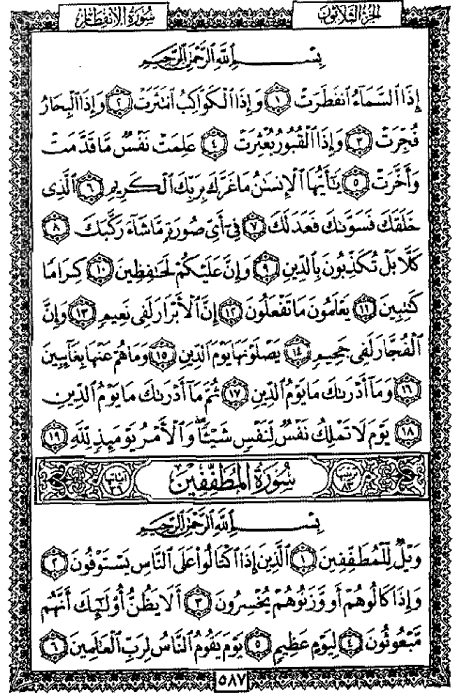 الجزء الثلاثون
سورة الانفطار
بسم الله الرحمن الرحيم
إِذَا ٱلسَّمَآءُ ٱنفَطَرَتْ ١ وَإِذَا ٱلْكَوَاكِبُ ٱنتَثَرَتْ ٢ وَإِذَا ٱلْبِحَارُ
فُجِّرَتْ ٣ وَإِذَا ٱلْقُبُورُ بُعْثِرَتْ ٤ عَلِمَتْ نَفْسٌ مَّا قَدَّمَتْ
وَأَخَّرَتْ ٥ يَٰٓأَيُّهَا ٱلْإِنسَٰنُ مَا غَرَّكَ بِرَبِّكَ ٱلْكَرِيمِ ٦ ٱلَّذِى
خَلَقَكَ فَسَوَّىٰكَ فَعَدَلَكَ ٧ فِىٓ أَىِّ صُورَةٍ مَّا شَآءَ رَكَّبَكَ ٨
كَلَّا بَلْ تُكَذِّبُونَ بِٱلدِّينِ ٩ وَإِنَّ عَلَيْكُمْ لَحَٰفِظِينَ ١٠ كِرَامًا
كَٰتِبِينَ ١١ يَعْلَمُونَ مَا تَفْعَلُونَ ١٢ إِنَّ ٱلْأَبْرَارَ لَفِى نَعِيمٍ ١٣ وَإِنَّ
ٱلْفُجَّارَ لَفِى جَحِيمٍ ١٤ يَصْلَوْنَهَا يَوْمَ ٱلدِّينِ ١٥ وَمَا هُمْ عَنْهَا بِغَآئِبِينَ
١٦ وَمَآ أَدْرَىٰكَ مَا يَوْمُ ٱلدِّينِ ١٧ ثُمَّ مَآ أَدْرَىٰكَ مَا يَوْمُ ٱلدِّينِ
١٨ يَوْمَ لَا تَمْلِكُ نَفْسٌ لِّنَفْسٍ شَيْـًٔا ۖ وَٱلْأَمْرُ يَوْمَئِذٍ لِّلَّهِ ١٩
سورة المطففين
بسم الله الرحمن الرحيم
وَيْلٌ لِّلْمُطَفِّفِينَ ١ ٱلَّذِينَ إِذَا ٱكْتَالُوا۟ عَلَى ٱلنَّاسِ يَسْتَوْفُونَ ٢
وَإِذَا كَالُوهُمْ أَو وَّزَنُوهُمْ يُخْسِرُونَ ٣ أَلَا يَظُنُّ أُو۟لَٰٓئِكَ أَنَّهُم
مَّبْعُوثُونَ ٤ لِيَوْمٍ عَظِيمٍ ٥ يَوْمَ يَقُومُ ٱلنَّاسُ لِرَبِّ ٱلْعَٰلَمِينَ ٦
٥٨٧